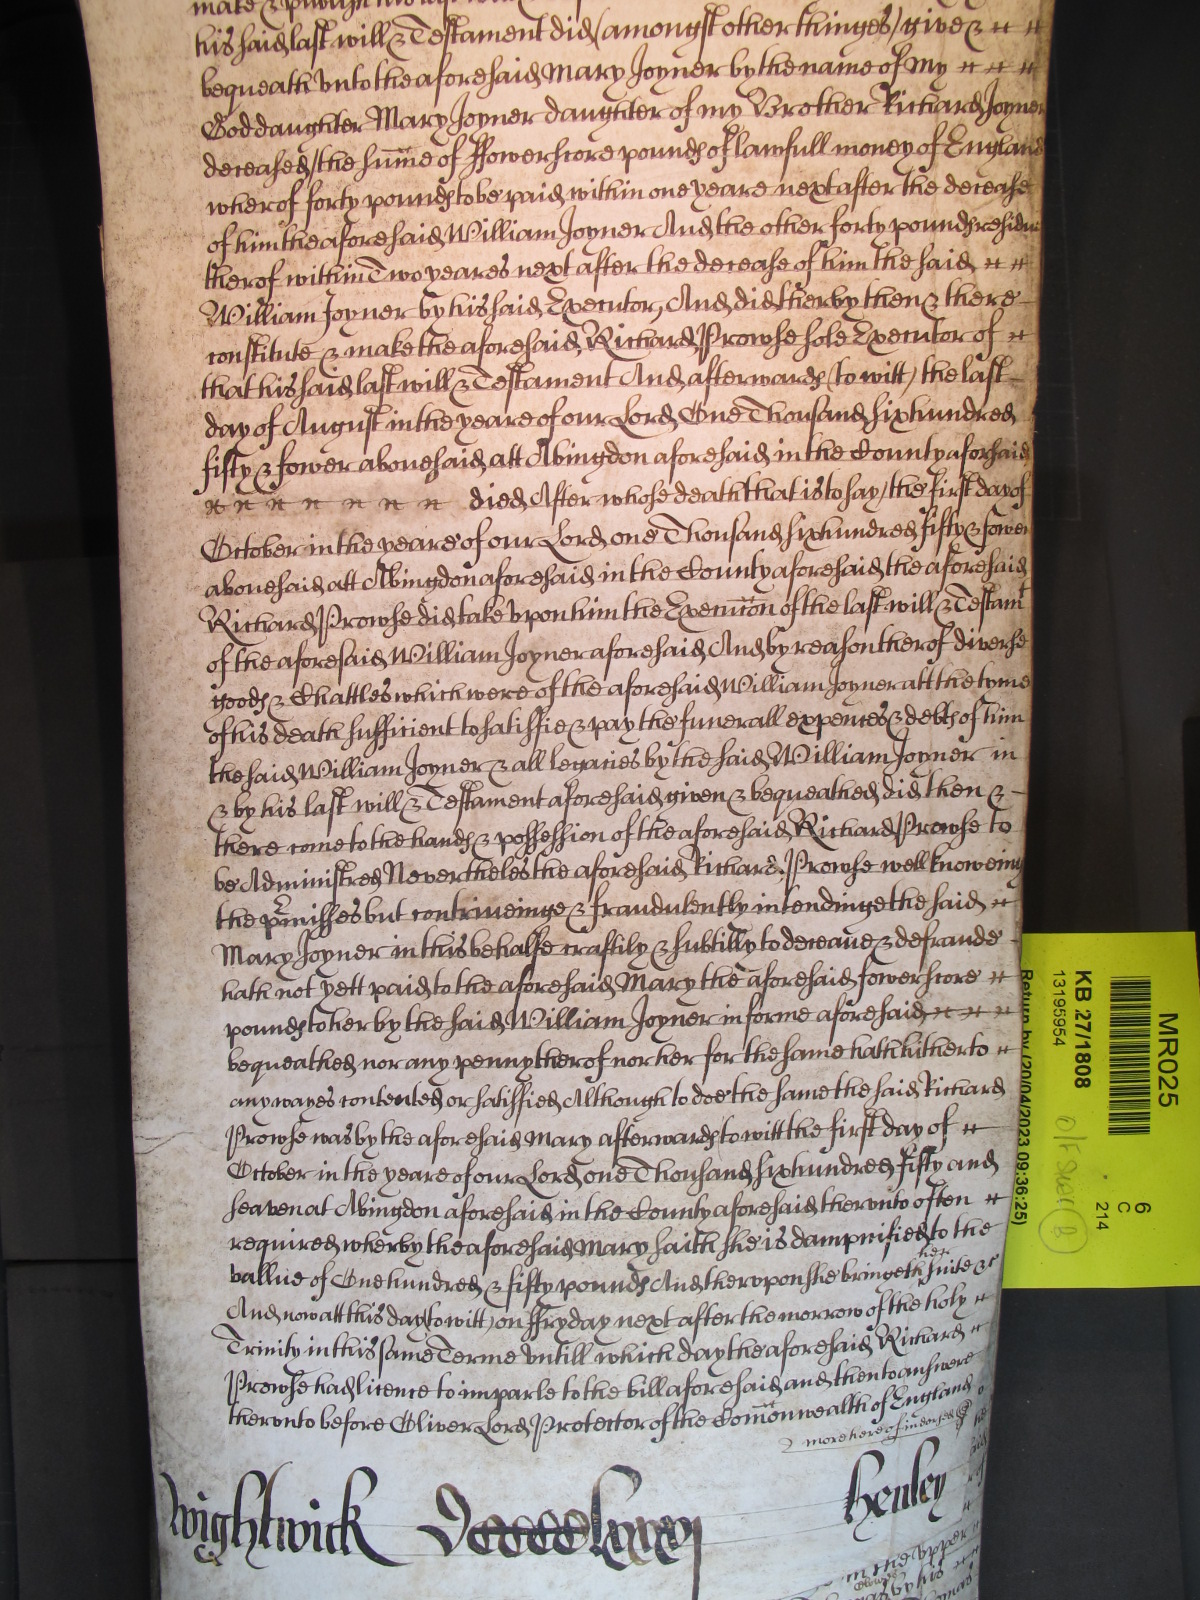 his said last will & Testament did (amongst other thinges) give &
bequeath vnto the aforesaid Mary Joyner by the name of my
Goddaughter Mary Joyner daughter of my Brother Richard Joyner
deceased, the sume of ffowerscore pounds of lawfull money of England
wherof forty pounds to be paid within one yeare next after the decease
of him the aforesaid William Joyner And the other forty pounds residue
therof within Two yeares next after the decease of him the said
William Joyner by his said Executor, And did therby then & there
constitute & make the aforesaid Richard Prowse sole Executor of
that his said last will & Testament And afterwards (to witt) the last
day of August in the yeare of our Lord One Thousand six hundred
fifty & fower abouesaid att Abingdon aforesaid in the County aforesaid
died After whose death that is to say, the first day of
October in the yeare of our Lord one Thousand six hundred fifty & fower
abouesaid att Abingdon aforesaid in the County aforesaid the aforesaid
Richard Prowse did take vpon him the Execucon of the last will & Testamt
of the aforesaid William Joyner aforesaid And by reason therof diverse
goods & Chattles which were of the aforesaid William Joyner att the tyme
of his death sufficient to satisfie & pay the funerall expences & debts of him
the said William Joyner & all legacies by the said William Joyner in
& by his last will & Testament aforesaid given & bequeathed did then &
there come to the hands & possession of the aforesaid Richard Prowse to
be Administred Neverthelesthe aforesaid Richard Prowse well knoweing
the pmisses but contriveinge & fraudulently intendinge the said
Mary Joyner in this behalfe craftily & subtilly to deceaue & defraude
hath not yett paid to the aforesaid Mary the aforesaid fowerscore
pounds to her by the said William Joyner in forme aforesaid
bequeathed nor any penny therof nor her for the same hath hitherto
any wayes contented or satisfied Although to doe the same the said Richard
Prowse was by the aforesaid Mary afterwards to witt the first day of
October in the yeare of our Lord one Thousand six hundred fifty and
seaven at Abingdon aforesaid in the County aforesaid thervnto often
required wherby the aforesaid Mary saith she is dampnified to the
vallue of One hundred & fifty pounds And thervpon she bringeth her suite &c
And now att this day (to witt) on ffryday next after the morrow of the holy
Trinity in this same Terme vntill which day the aforesaid Richard
Prowse had licence to imparle to the bill aforesaid and then to answere
thervnto before Oliver Lord Protector of the Comonwealth of England
more hereof indorsed
Wightwick
Henley
MR025
KB 27/1808
13195954
6
C
214
Return by (20/04/2023 09:36:25)